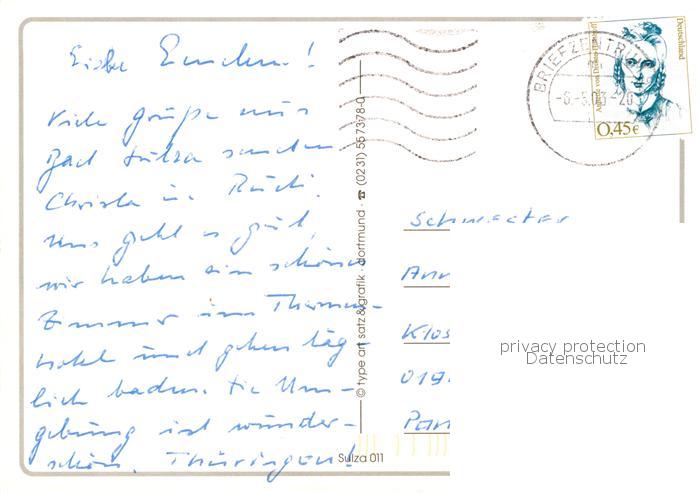 Viele Grüße aus
Bad Sulza senden
Christa u. Rudi.
Uns geht es gut,
wir haben ein schönes
Zimmer im Thermen-
hotel und gehen täg-
lich baden. Die Um-
gebung ist wunder-
schön. Thüringen!
© type art satz&grafik · dortmund · ☎ (0231) 557378-0
Sulza 011
BRIEFZENTRUM
-6.-5.03-20
Deutschland
0,45€
Schwester
Ann
Klos
019
Pan
privacy protection
Datenschutz